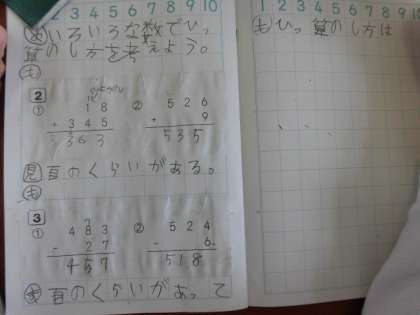 2 3 4 5 6 7 8 9 10
め いろいろな数でひっ
算のしかたを考えよう。
も
2
① 18
+ 345
363
② 526
+ 9
535
見 百のくらいがある。
も
3
① 483
- 27
457
② 524
- 6
518
ま 百のくらいがあって
1 2 3 4 5 6 7 8 9 10
も ひっ算のし方は
、、、